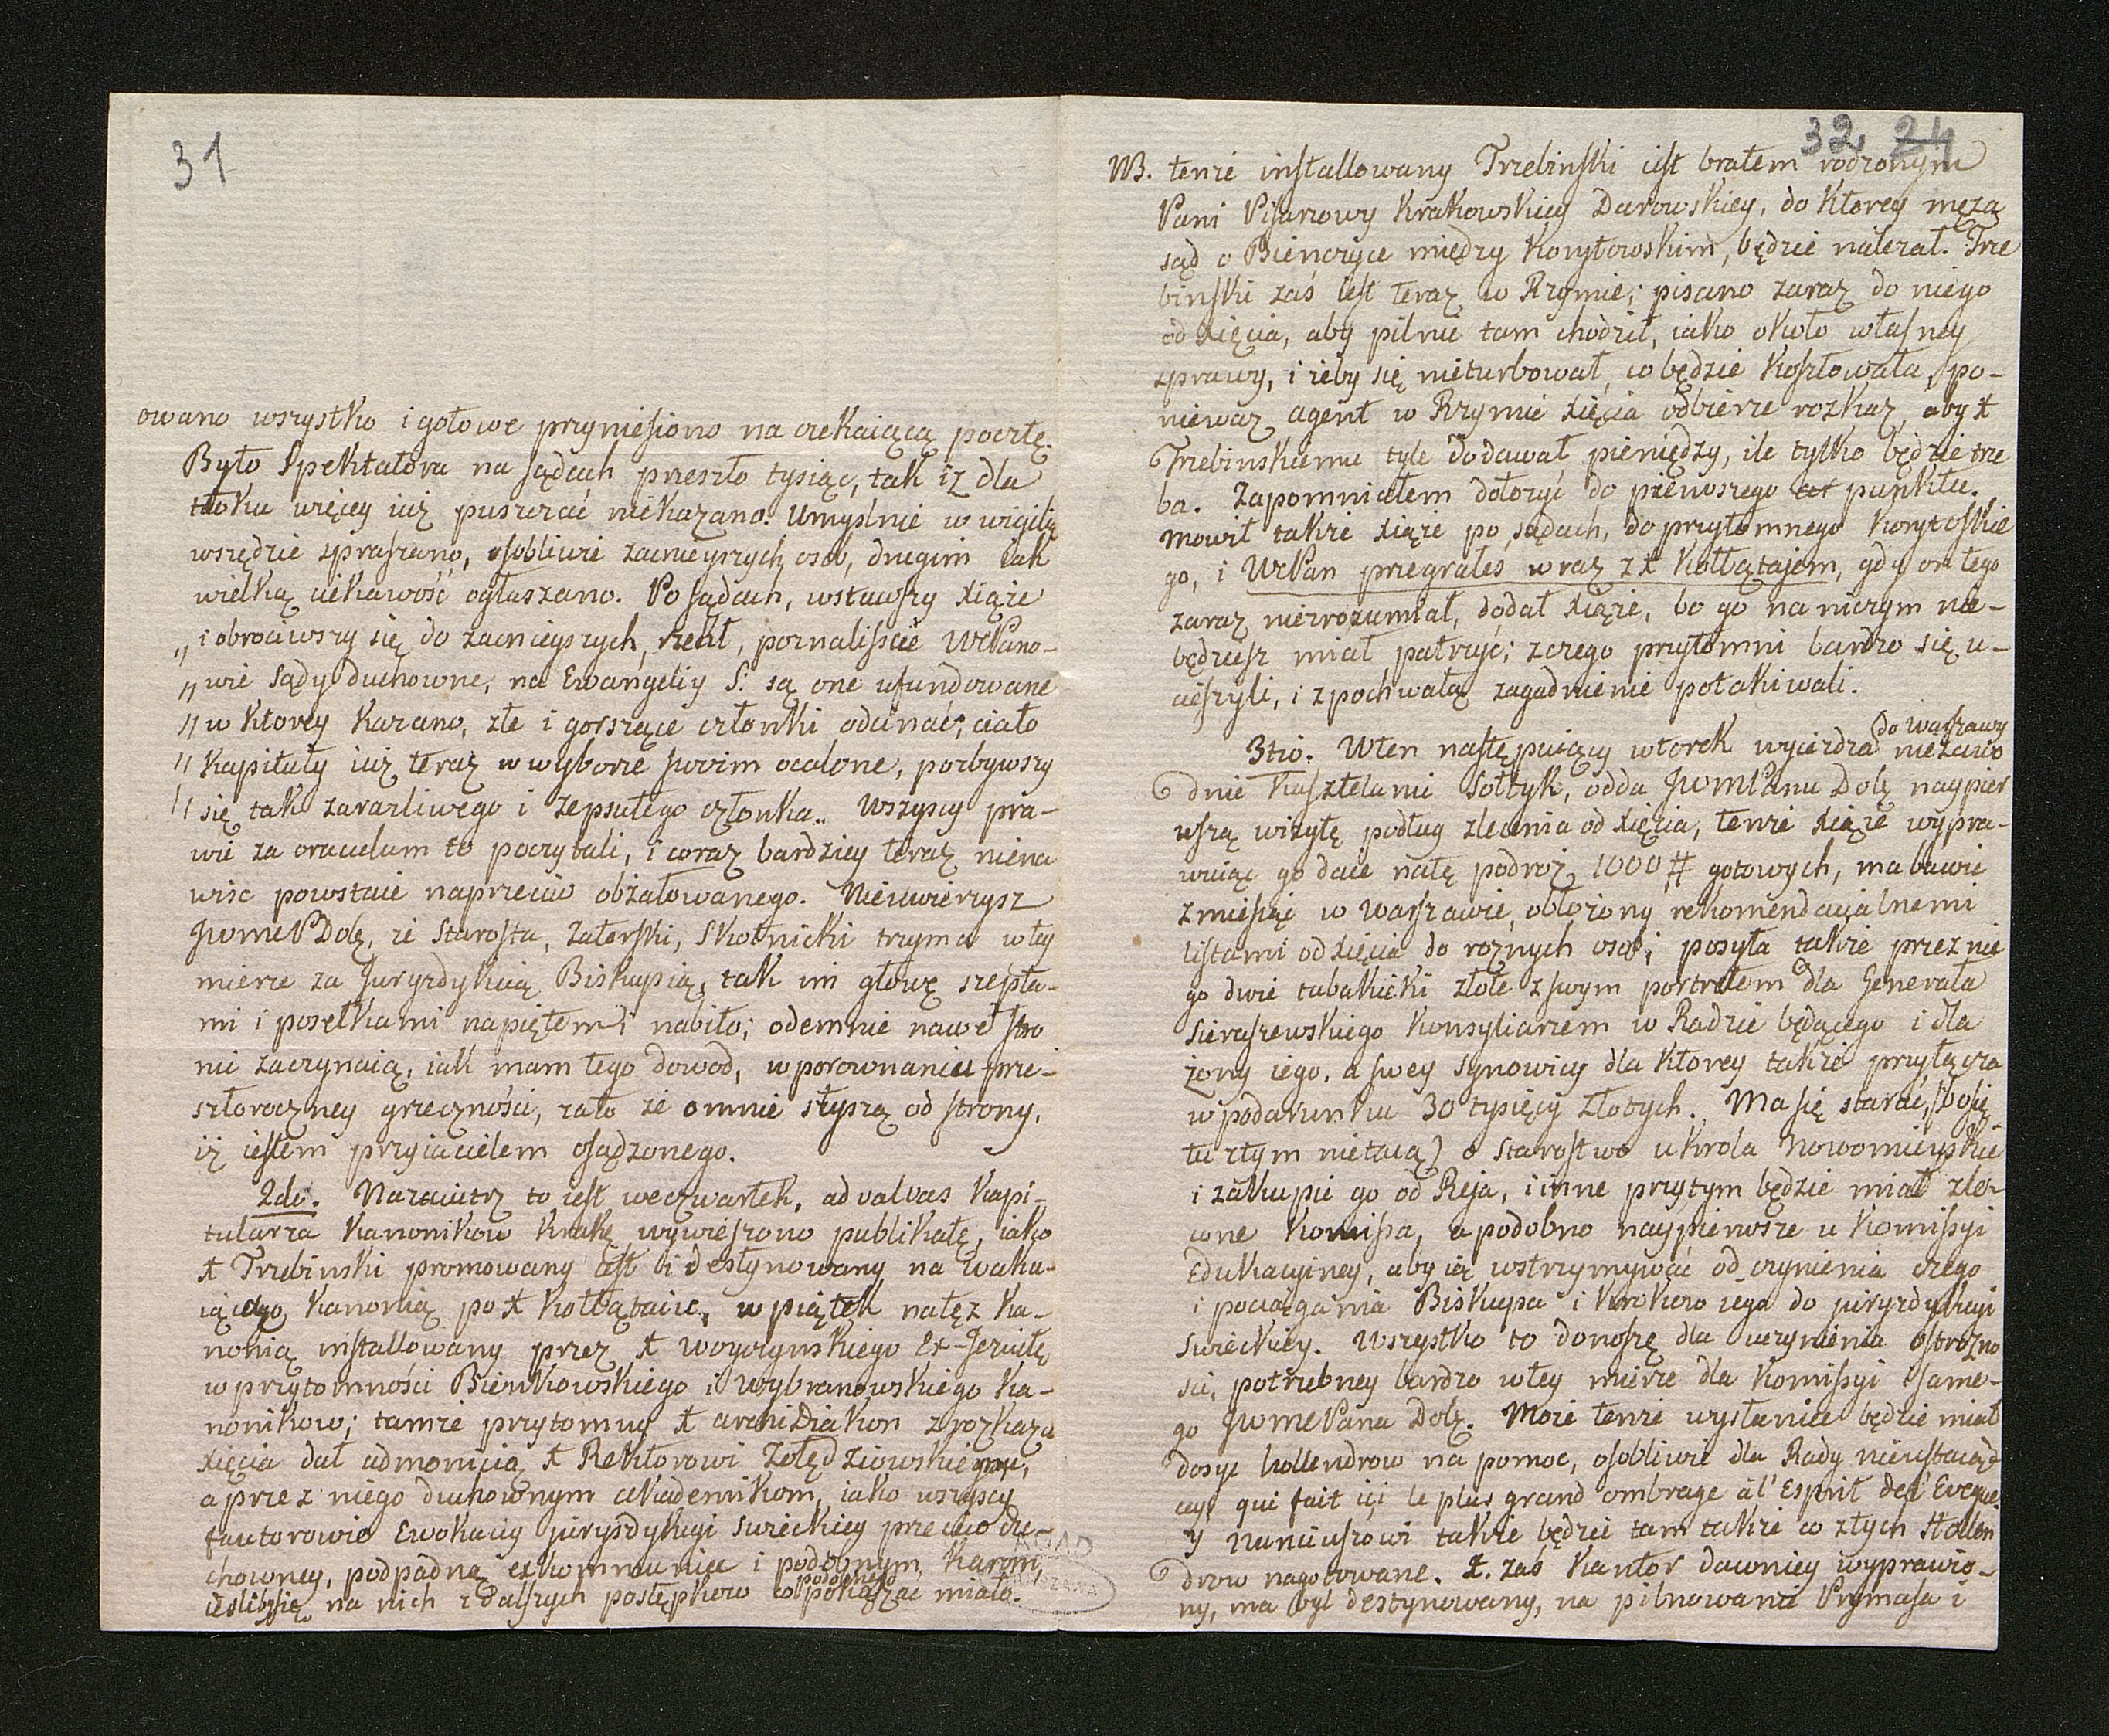 31
owano wszystko i gotowe przyniesiono na czekaiącą pocztę.
Było Spektatora na sądach przeszło tysiąc, tak iż dla
tłoku więcey iuż puszczać niekazano. Umyslnie w wigilią
wszędzie zpraszano, osobliwie zacnieyszych osób, drugim iak
wielką ciekawość ogłaszano. Po sądach, wstawszy xiąże
„ i obrociwszy się do zacnieyszych, rzekł, poznaliscie WcPano-
„ wie Sądy duchowne, na Ewangeliy S: są one ufundowane
„ w ktorey kazano, złe i gorszące członki odcinać; ciało
„ Kapituły iuż teraz w wyborze swoim ocalone, pozbywszy
„ się tak zarazliwego i zepsutego członka„ Wszyscy pra-
wie za oraculum to poczytali, i coraz bardziey teraz niena
wisc powstaie naprzeciw obżałowanego. Nieuwierzysz
JWmcPDoly, że Starosta, Zatorski, Skotnicki trzyma wtey
mierze za Juryzdykcią Biskupią, tak im głowę szepta-
mi i posełkami napiętemi nabito; odemnie nawet stro
nić zaczynaią, iak mam tego dowod, w porownaniu prze-
szłoroczney grzeczności, zato że omnie słyszą od strony,
iż iestem przyiacielem osądzonego.
2do. Nazaiutrz to iest weczwartek, ad valvas Kapi-
tularza Kanonikow Krakⱥ wywieszono publikatę, iako
X Trzebinski promowany iest i destynowany na waku-
iącą Kanonią po X Kołłątaiu, w piątek natęż Ka-
nonią installowany przez X Woyczynskiego Ex-Jezuitę
w przytomności Bienkowskiego i Wybranowskiego Ka-
nonikow; tamże przytomny X archiDiakon z rozkazu
xięcia dał admonicią X Rektorowi Żołędziowskiemu,
a przez niego duchownym akademikom, iako wszyscy
fautorowie Ewokaciy juryzdykcyi swieckiey przeciw du-
chowney, podpadną exkommunice i podobnym karom,
iesliby się na nich z dalszych postępkow co podobnego pokazać miało.
32, 24
NB. tenże installowany Trzebinski iest bratem rodzonym
Pani Pisarzowy Krakowskiey Darowskiey, do ktorey męża
sąd o Bienczyce między Korytowskim, będzie należał. Trze
binski zaś iest teraz w Rzymie; pisano zaraz do niego
od xięcia, aby pilnie tam chodził, iako około własney
sprawy, i żeby się nieturbował, co będzie kosztowała, po-
nieważ agent w Rzymie xięcia odbierze rozkaz, aby X
Trzebinskiemu tyle dodawał pieniędzy, ile tylko będzie trze
ba. Zapomniałem dołożyć do pierwszego punktu.
Mowił także xiąże po sądach, do przytomnego Korytoskie
go, i WcPan przegrałes wraz z X Kołłątajem, gdy on tego
zaraz niezrozumiał, dodał xiąże, bo go na niczym nie-
będziesz miał patrzyć; z czego przytomni bardzo się u-
cieszyli, i z pochwałą zagadnienie potakiwali.
3tio. Wten następuiący wtorek wyieżdza do Warszawy niezawo
dnie Kasztelanic Sołtyk, odda JWmPanu Doly naypier
wszą wizytę podług zlecenia od xięcia, tenże xiąże wypra-
wuiąc go daie natę podroż 1000 # gotowych, ma bawić
zmiesiąc w Warszawie, obłożony rekomendacyalnemi
listami od xięcia do roznych osob; posyła także przez nie
go dwie tabakierki złote z swym portretem dla Jenerała
Sieraszewskiego Konsyliarzem w Radzie będącego i dla
żony iego, a swey synowicy dla ktorey także przyłącza
w podarunku 30 tysięcy złotych. Ma się starać, (bo się
tu z tym nietaią) o starostwo u krola Nowomieyskie
i zakupić go od Reja, i inne przytym będzie miał zle-
cone Komissa, a podobno naypierwsze u Komissyi
Edukacyiney, aby ią wstrzymywać od czynienia czego
i pociągania Biskupa i krokow iego do juryzdykcyi
swieckiey. Wszystko to donoszę dla uczynienia ostrożno
sci, potrzebney bardzo wtey mierze dla Komissyi i same-
go JWmcPana Doly. Może tenże wysłaniec będzie miał
dosyc hollendrow na pomoc, osobliwie dla Rady nieustaią-
cey, qui fait içi le plus grand ombrage à l'Esprit del' Eveque.
y Nunciuszowi także będzie tam także co złych Hollen
drow nagotowane. X. zaś Kantor dawniey wyprawio-
ny, ma być destynowany, na pilnowani Prymasa i